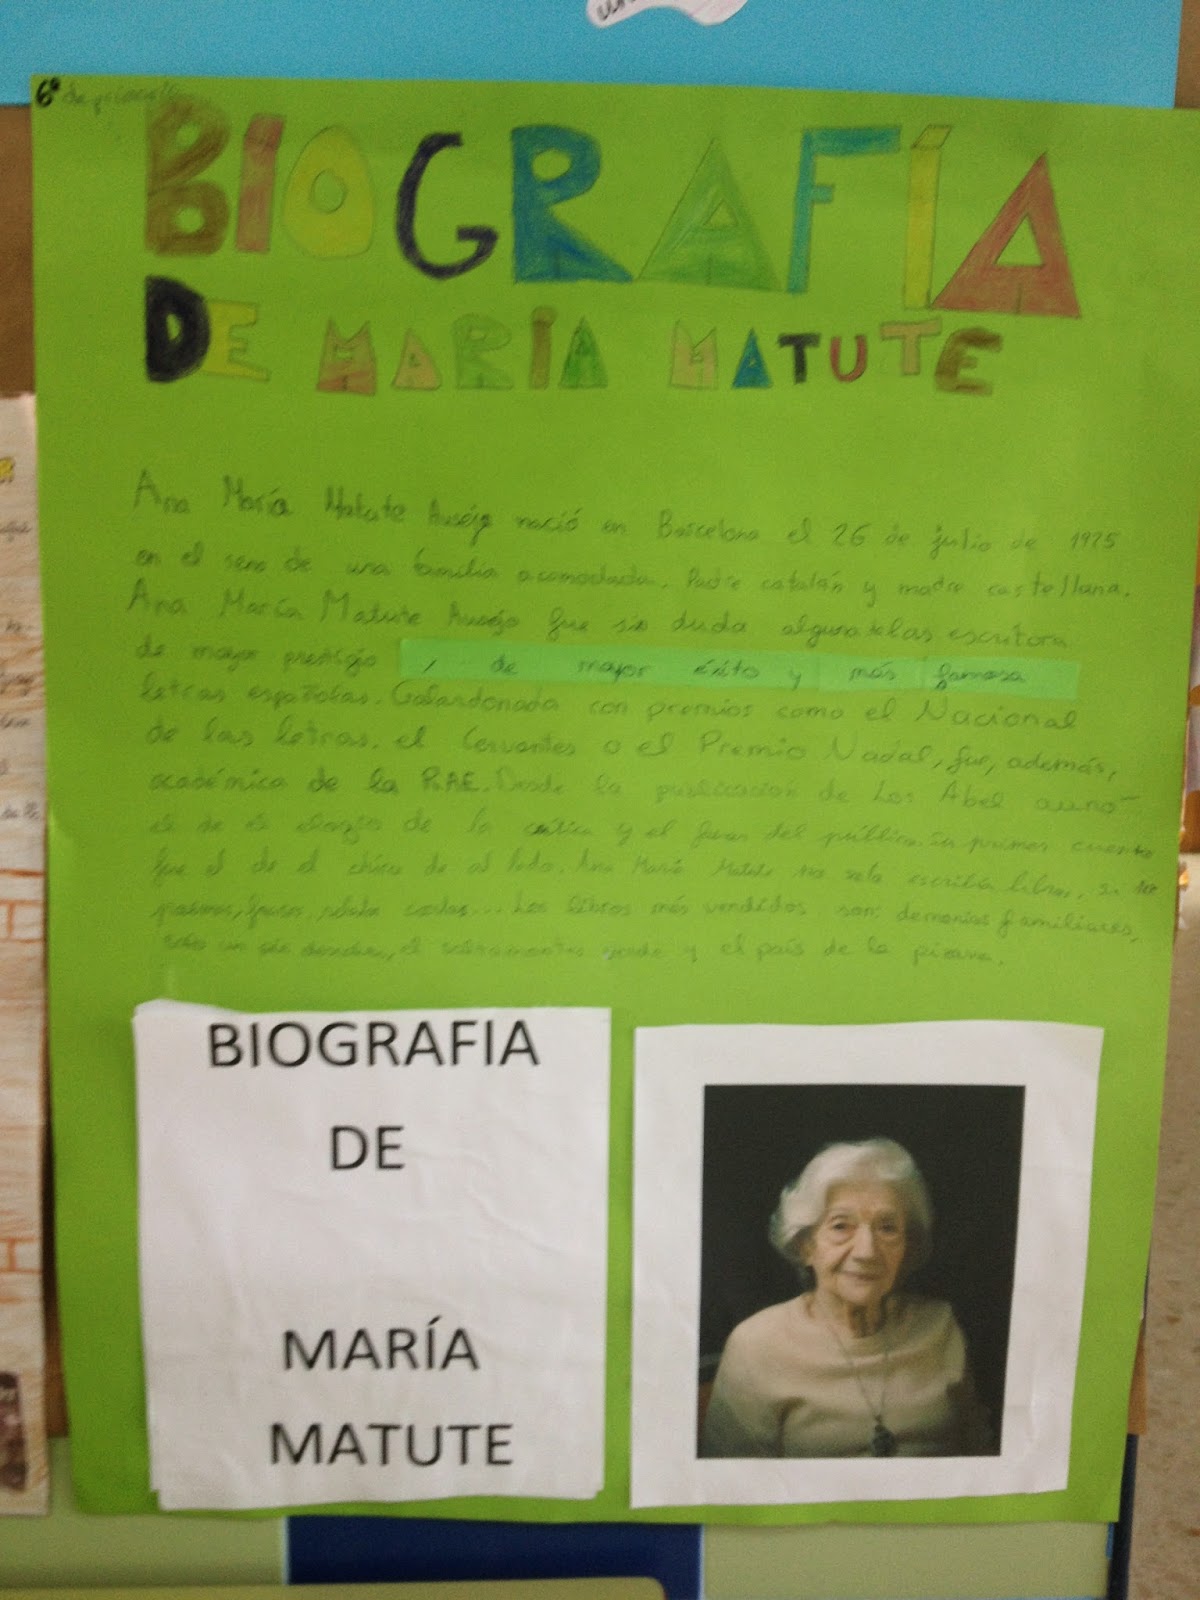 6º de
BIOGRAFÍA
DE MARÍA MATUTE
Ana María Matute Ausejo nació en Barcelona el 26 de julio de 1925
en el seno de una familia acomodada. Padre catalán y madre castellana.
Ana María Matute Ausejo fue sin duda alguna las escritora
de mayor prestigio , de mayor éxito y más famosa
letras españolas. Galardonada con premios como el Nacional
de las letras, el Cervantes o el Premio Nadal, fue, además,
académica de la RAE. Desde la publicación de Los Abel aunó
elogio de la crítica y el favor del público. Su primer cuento
fue el de el chico de al lado. Ana María Matute no solo escribía libros,
poemas, ... Los libros más vendidos son: demonios familiares,
y el país de la pizarra.
BIOGRAFIA
DE
MARÍA
MATUTE